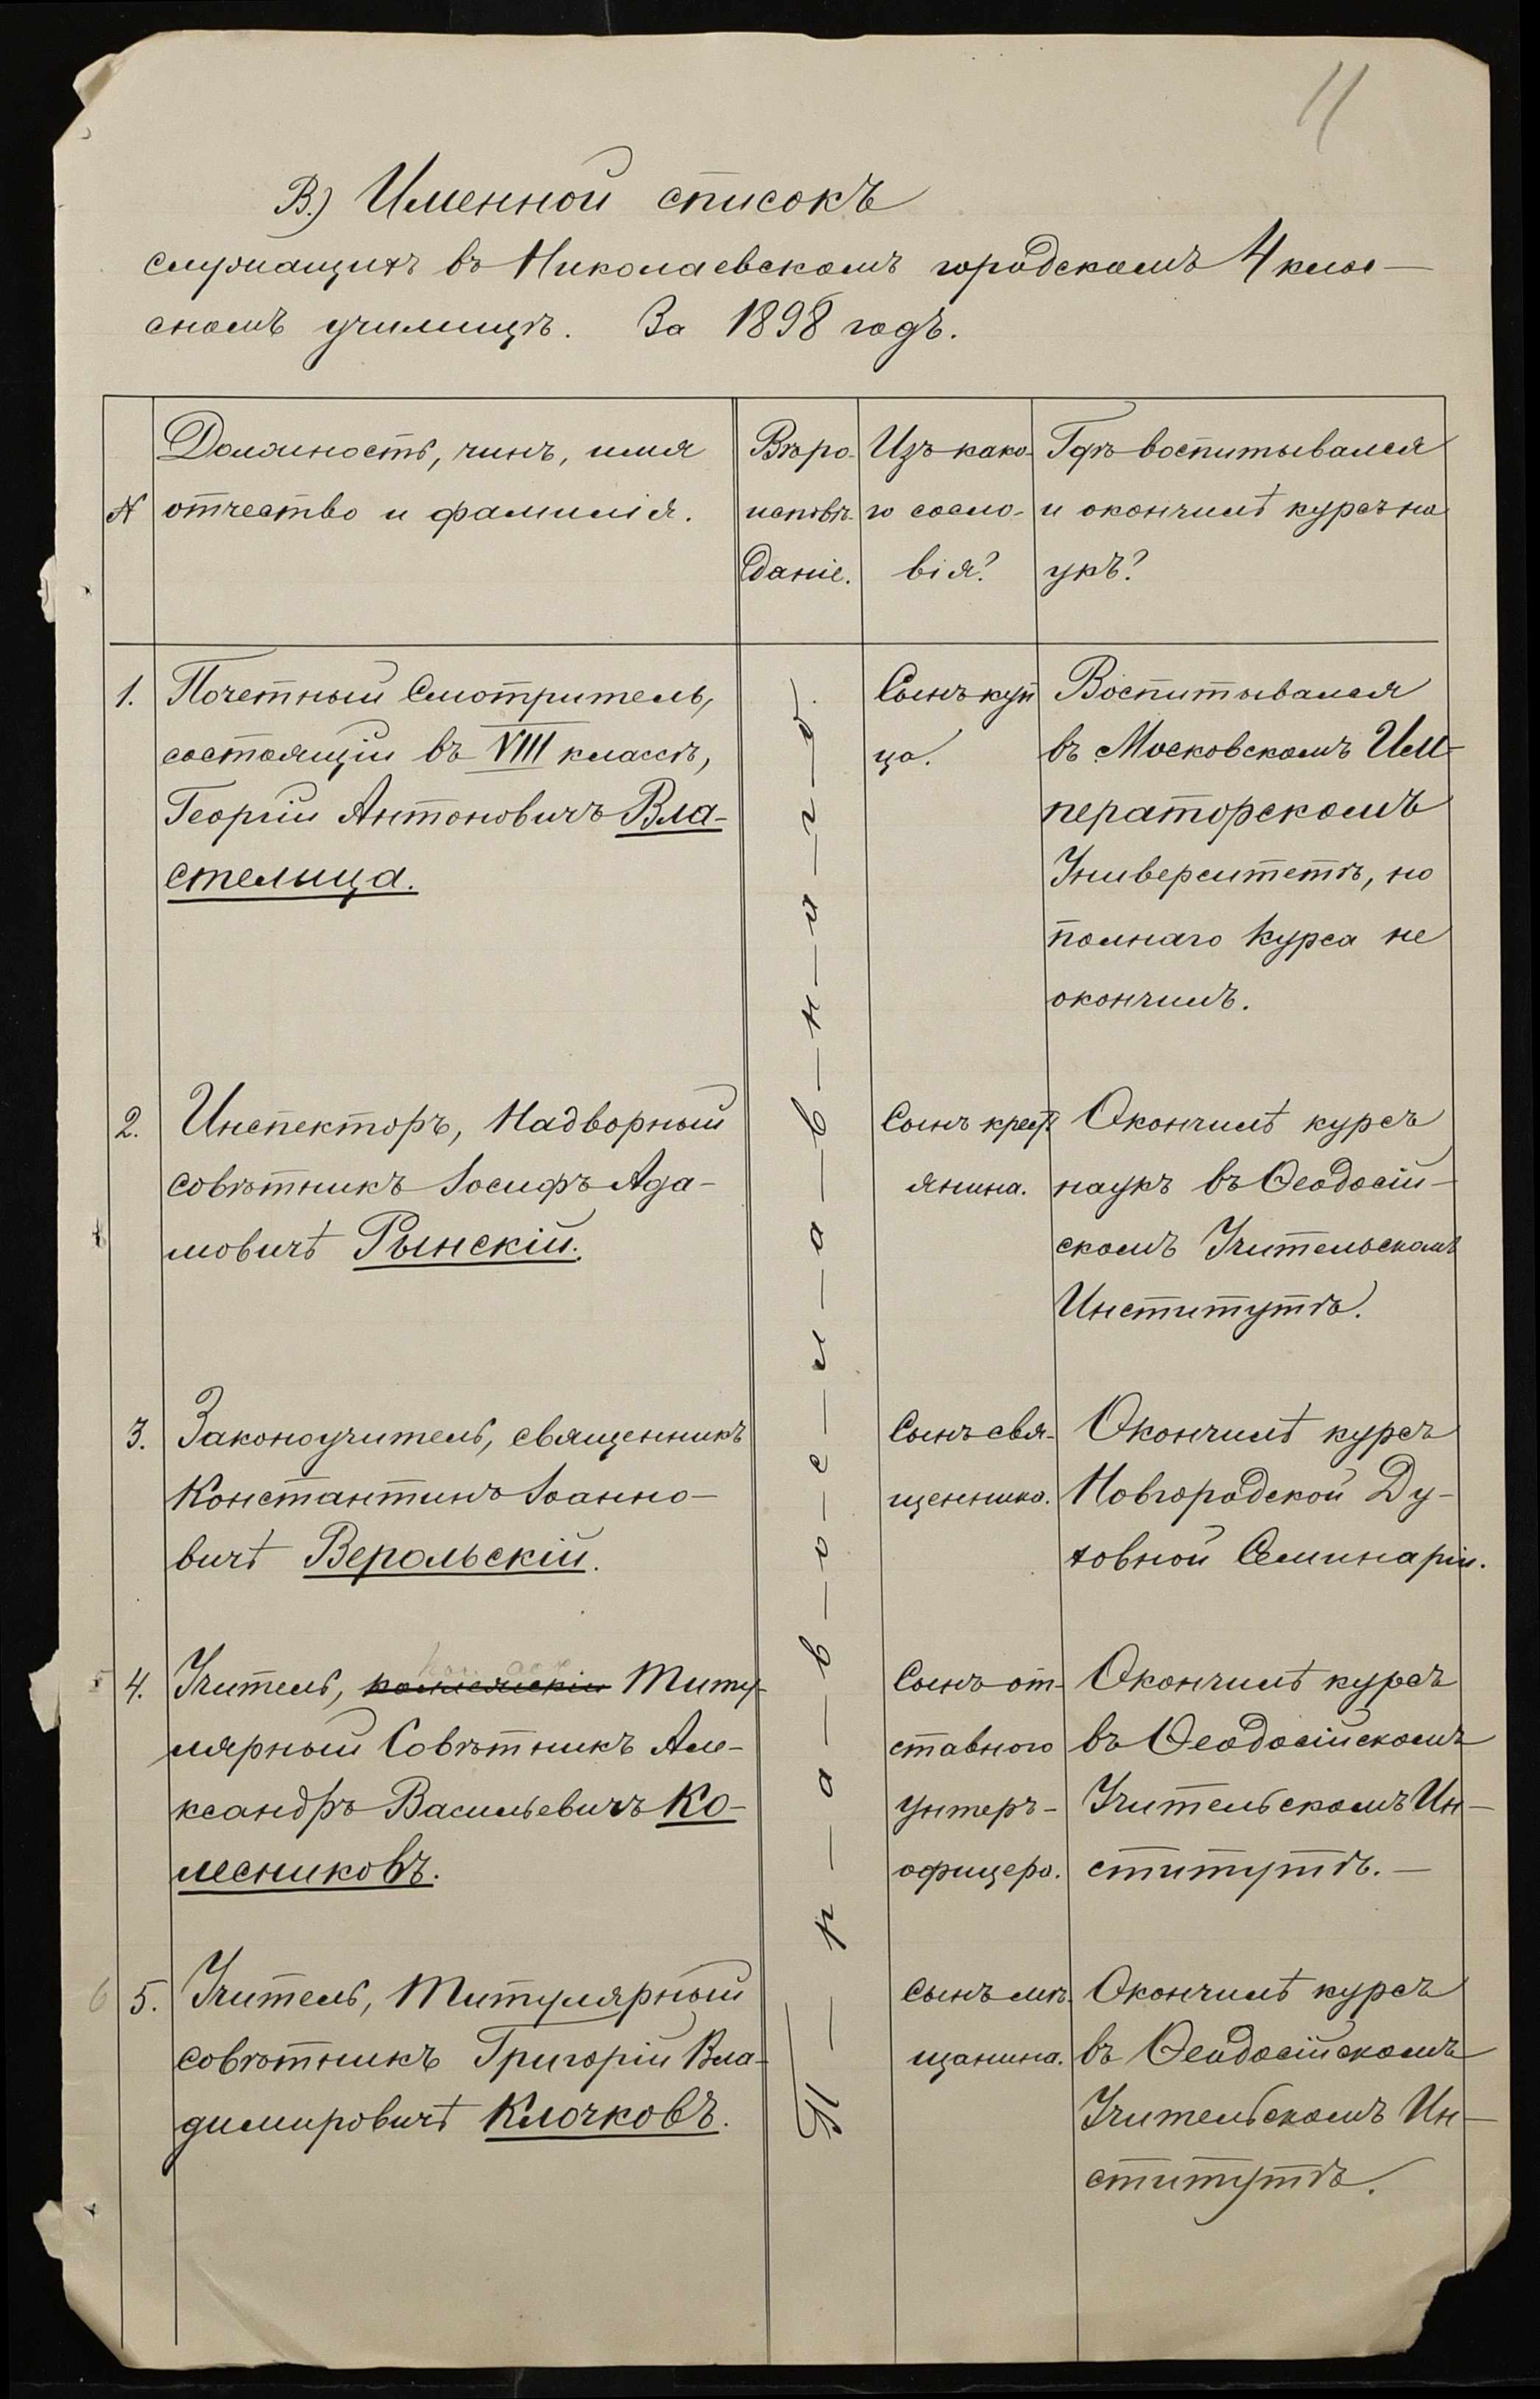 11
В.) Именной списокъ
служащихъ въ Николаевскомъ городскомъ 4 клас-
сномъ училищѣ. За 1898 годъ.
N
Должность, чинъ, имя
отчество и фамилія.
Вѣро-
исповѣ-
даніе.
Изъ како-
го сосло-
вія?
Гдѣ воспитывался
и окончилъ курсъ на
укъ?
1.
Почетный Смотритель,
состоящій въ VIII классѣ,
Георгій Антоновичъ Вла-
стелица.
П-р-а-в-о-с-л-а-в-н-а-г-о.
Сынъ куп
ца.
Воспитывался
въ Московскомъ Им-
ператорскомъ
Университетѣ, но
полнаго курса не
окончилъ.
2.
Инспекторъ, Надворный
совѣтникъ Іосифъ Ада-
мовичъ Рынскій.
Сынъ крест
янина.
Окончилъ курсъ
наукъ въ Ѳеодосій-
скомъ Учительскомъ
Институтѣ.
3.
Законоучитель, священникъ
Константинъ Іоанно-
вичъ Верольскій.
Сынъ свя-
щенника.
Окончилъ курсъ
Новгородской Ду-
ховной Семинаріи.
4.
Учитель, Титу-
лярный Совѣтникъ Але-
ксандръ Васильевичъ Ко-
лесниковъ.
Сынъ от-
ставного
унтеръ-
офицера.
Окончилъ курсъ
въ Ѳеодосійскомъ
Учительскомъ Ин-
ститутѣ. —
6
5.
Учитель, Титулярный
совѣтникъ Григорій Вла-
димировичъ Клочковъ.
Сынъ мѣ-
щанина.
Окончилъ курсъ
въ Ѳеодосійскомъ
Учительскомъ Ин-
ститутѣ.